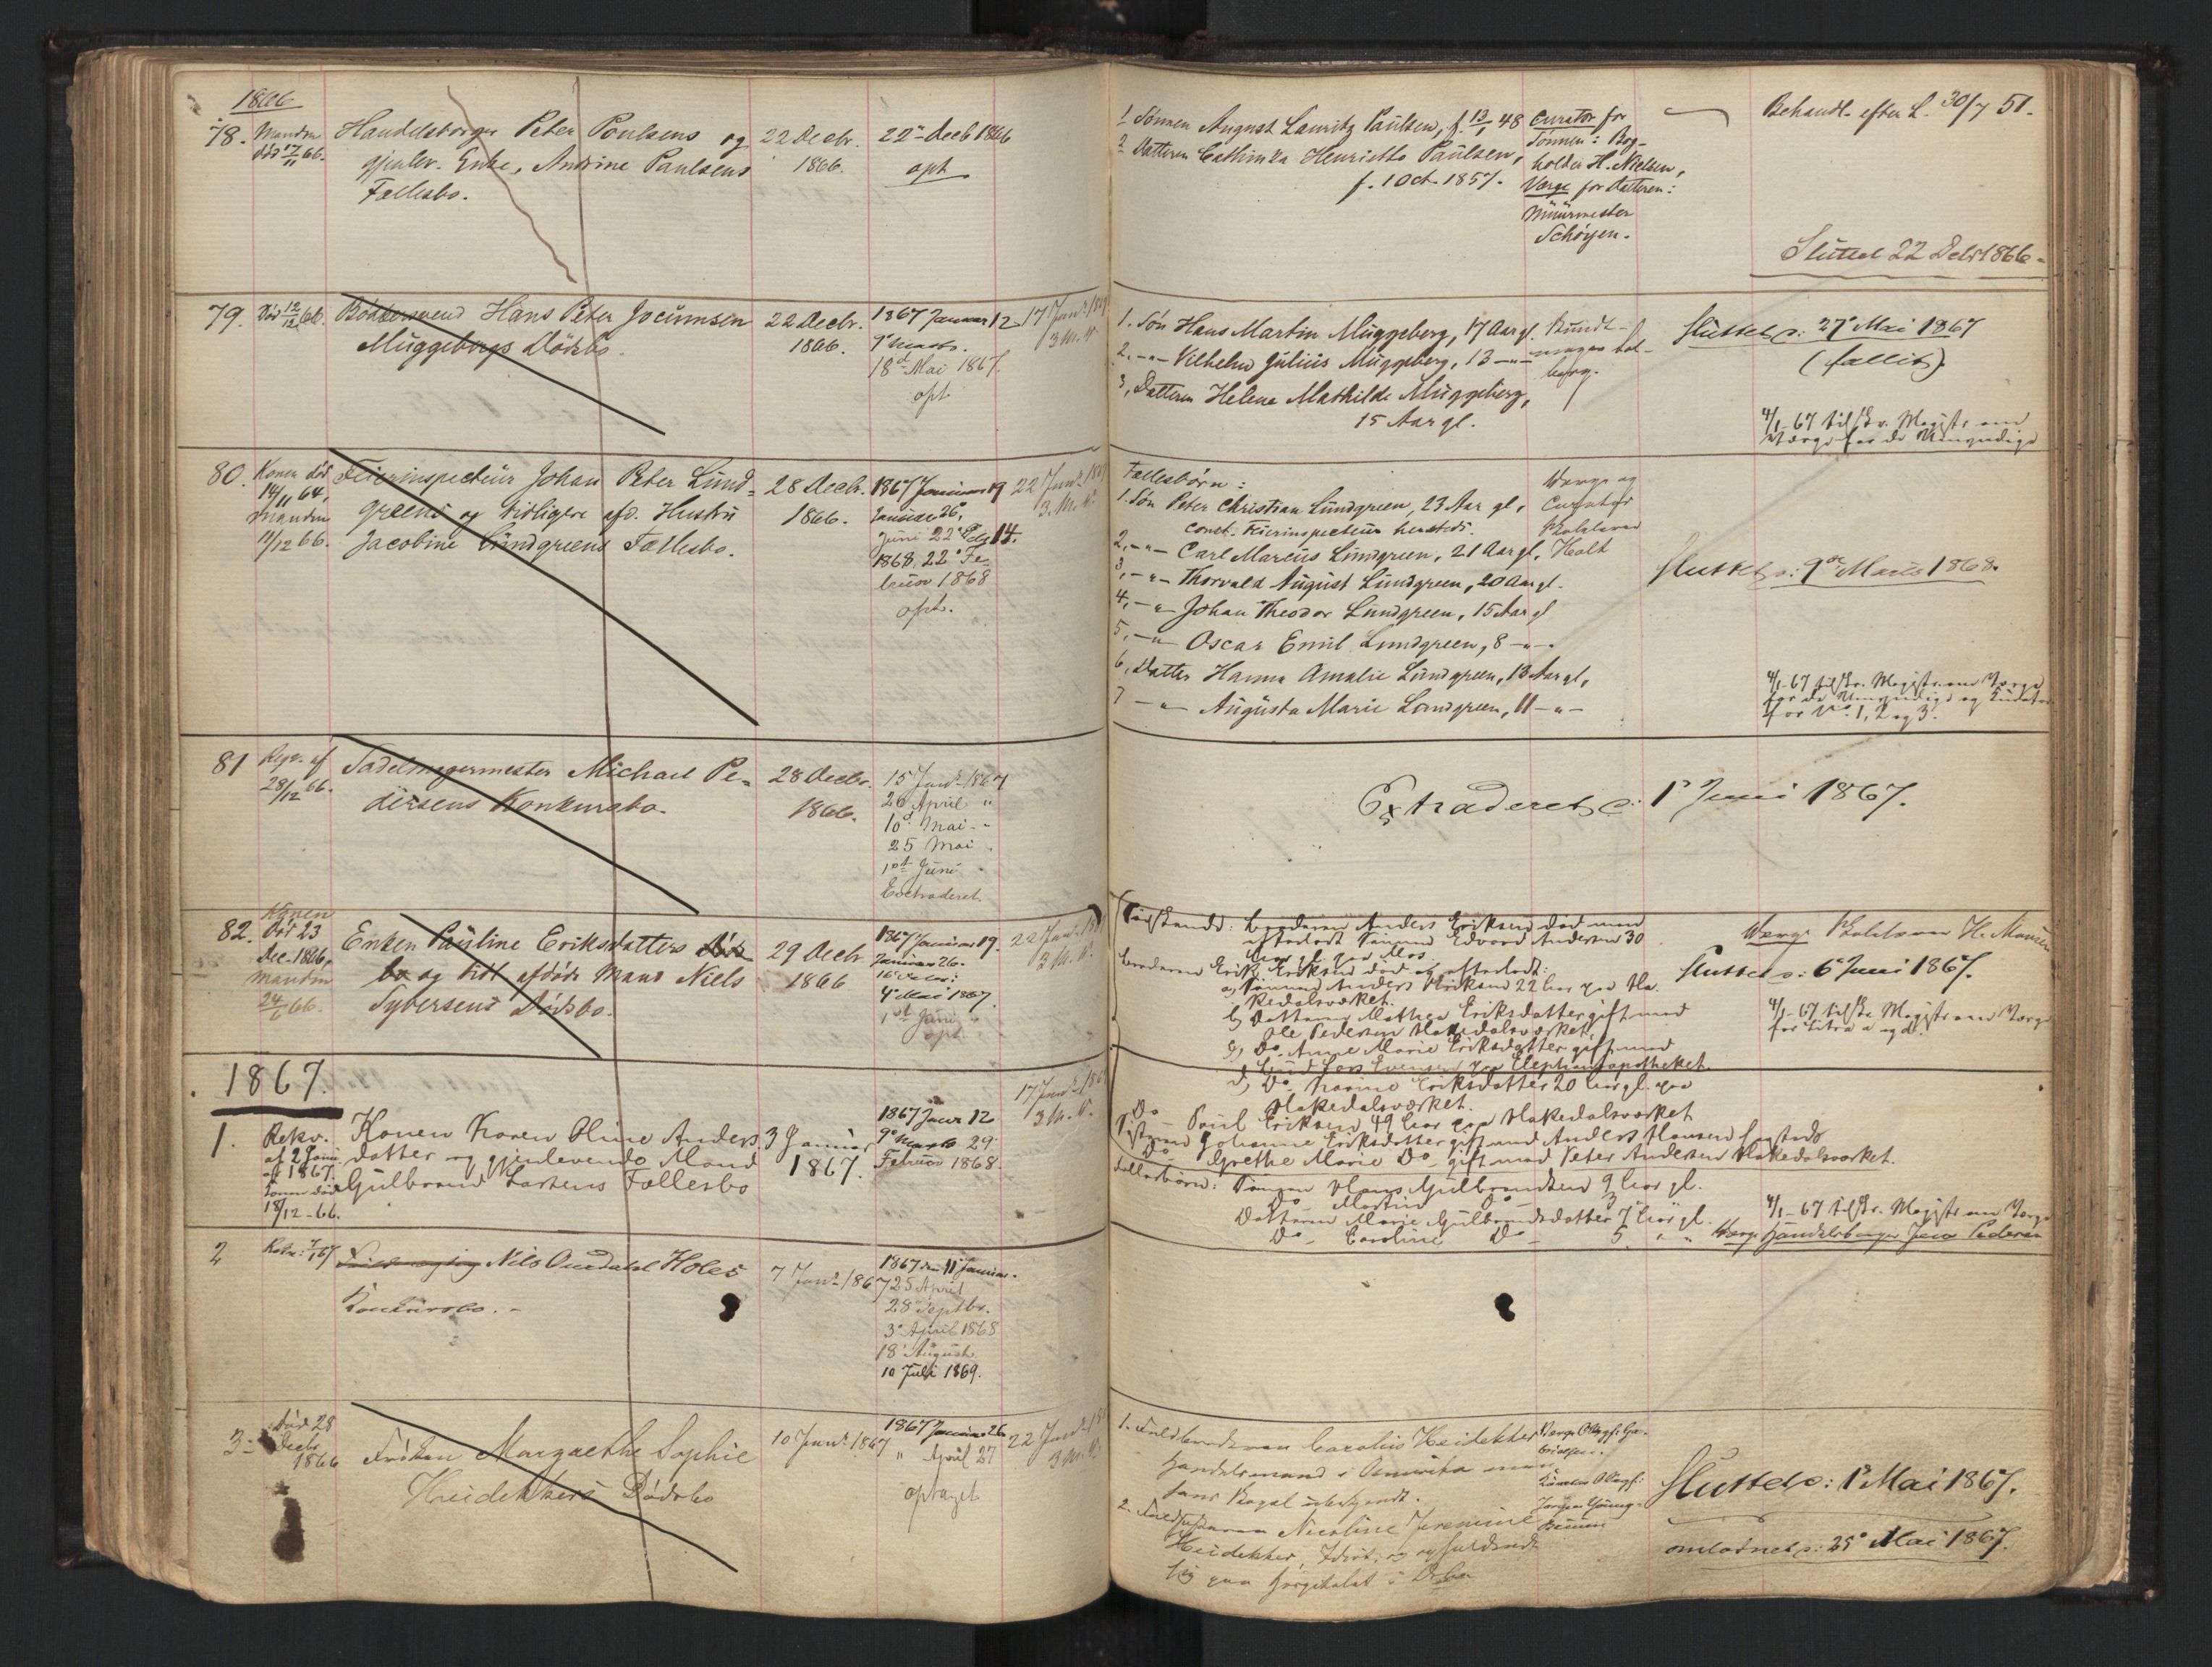 1866
78. Manden død 17/11 66.
Handelsborger Peter Poulsens og
gjenlev. Enke, Andrine Paulsens
Fællesbo.
22 Decbr.
1866.
22de Decb 1866
opt
1 Sønnen August Lauritz Paulsen, f. 13/1 48
2 Datteren Cathinka Henriette Paulsen,
f. 1 Oct. 1857.
Curator for
Sønnen: Bog-
holder H. Nielsen,
Værge for Datteren:
Muurmester
Schøyen.
Behandl. efter L. 30/7 51.
Sluttet 22 Decbr 1866.
79. Død 12/12 66.
Bødkersvend Hans Peter Jocumsen
Muggebergs Dødsbo.
22 Decbr.
1866.
1867 Januar 12
9de Marts.
18de Mai 1867.
opt
17 Janr. 1867
3 M. V.
1. Søn Hans Martin Muggeberg, 17 Aar gl.
2. -"- Vilhelm Julius Muggeberg, 13 -"-
3, Datteren Helene Mathilde Muggeberg,
15 Aar gl.
Sluttet s: 27de Mai 1867
(fallit)
4/1 67 tilskr. Magistr. om
Værge for de Umyndige
80. Konen død
14/11 64,
Manden
11/12 66.
Feierinspecteur Johan Peter Lund-
greens og tidligere afd. Hustru
Jacobine Lundgreens Fællesbo.
28 Decbr.
1866.
1867 Januar 19
Januar 26,
Juni 22de
1868, 22de Fe-
bruar 1868
opt.
22 Janr. 1867
3 M. V.
Fællesbørn:
1. Søn Peter Christian Lundgreen, 23 Aar gl,
const. Feierinspecteur hersteds.
2, -"- Carl Marcus Lundgreen, 21 Aar gl,
3, -"- Thorvald August Lundgreen, 20 Aar gl.
4, -"- Johan Theodor Lundgreen, 15 Aar gl
5, -"- Oscar Emil Lundgreen, 8 -"-
6, Datter Hanna Amalie Lundgreen, 13 Aar gl,
7 -"- Augusta Marie Lundgreen, 11 -"-
Værge og
Curator
Holt
Sluttet s: 9de Marts 1868.
4/1-67 tilskr. Magistr. om Værge
for de Umyndige og Curator
for No. 1, 2 og 3.
81 Rqv. af
28/12 66.
Sadelmagermester Michael Pe-
dersens Konkursbo.
28 Decbr.
1866.
15 Janr. 1867
26 April "
10de Mai "
25 Mai
1ste Juni
Extraderet.
Extraderet s: 1ste Juni 1867.
82. Konen
død 23
Dec. 1866,
Manden
24/6 66.
Enken Pauline Eriksdatters Døds
bo og tidl afdøde Mand Niels
Syversens Dødsbo.
29 Decbr.
1866
1867 Januar 19.
Januar 26.
4de Mai 1867.
1ste Juni
opt.
22 Janr. 18
3 M. V.
Sødskende: Broderen Anders Eriksen død men
efterladt Sønnen Edvard Andersen 30
Aar gl. paa Mos.
Broderen Erik Eriksen død og efterladt:
a, Sønnen Anders Eriksen 22 Aar paa Ha-
kedalsværket.
b, Datteren Mathea Eriksdatter gift med
Ole Pedersen Hakedalsværket
c, Do. Anne Marie Eriksdatter gift med
Evensen paa Elephantapotheket.
d, Do. Karine Eriksdatter 20 Aar gl. paa
Hakedalsværket.
Do - Poul Eriksen 49 Aar paa Hakedalsværket
Søsteren Johanne Eriksdatter gift med Anders Hansen
Do - Grethe Marie Do - gift med Peter Andersen Hakedalsværket.
Sluttet s: 6te Juni 1867.
4/1-67 tilskr. Magistr. om Værge
for Litra a og d.
1867.
1. Rekv.
af 2 Janr
1867.
Konen død
18/12-66.
Konen Karen Oline Anders
datter og gjenlevende Mand
Gulbrand Larsens Fællesbo
3 Januar
1867.
1867 Janr 12
9de Marts 29
Februar 1868.
17 Janr. 1867
3 M. V.
Fællesbørn: Sønnen Hans Gulbrandsen 9 Aar gl.
Do - Martin Do - 3
Datteren Marie Gulbrandsdatter 7 Aar gl.
Do - Caroline Do - 5 " "
4/1-67 tilskr. Magistr. om Værge
Værge Handelsborger Jens Pedersen
2 Rekv: 7/1 67
Nils Onsdahl Holes
Konkursbo.
7 Janr. 1867
1867 den 11te Januar.
25 April
28 Septbr.
3de April 1868
18 August
10 Juli 1869.
3. Død 28
Decbr
1866
Frøken Margrethe Sophie
Heidekkers Dødsbo
10 Janr. 1867
1867 Januar 26
" April 27
optaget
22 Janr. 18
3 M. V.
1. Fuldbroderen Carolius Heidekker
Handelsmand i Amerika men
hans Bopæl ubekjendt.
2. Fuldsøsteren Nicoline Jeremine
Heidekker, Idiot, og opholdende
sig paa Hospitalet i Oslo
Sluttet s: 1ste Mai 1867.
omlodnet s: 25de Mai 1867.